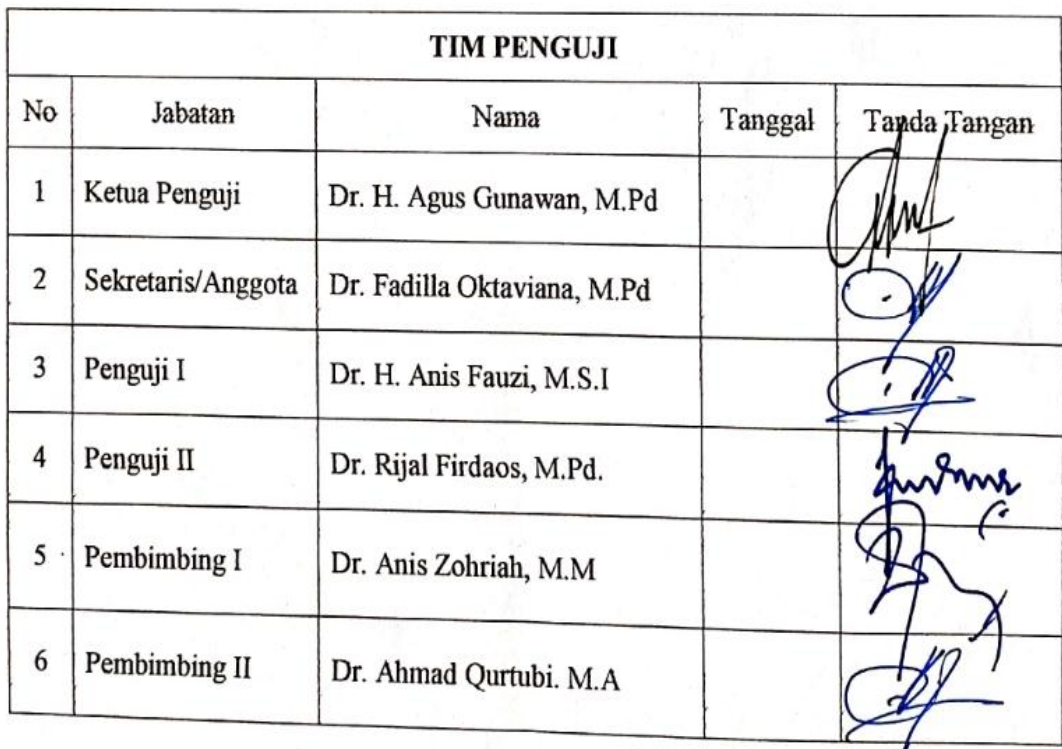 TIM PENGUJI
No Jabatan Nama Tanggal Tanda Tangan
1 Ketua Penguji Dr. H. Agus Gunawan, M.Pd
2 Sekretaris/Anggota Dr. Fadilla Oktaviana, M.Pd
3 Penguji I Dr. H. Anis Fauzi, M.S.I
4 Penguji II Dr. Rijal Firdaos, M.Pd.
5 Pembimbing I Dr. Anis Zohriah, M.M
6 Pembimbing II Dr. Ahmad Qurtubi. M.A